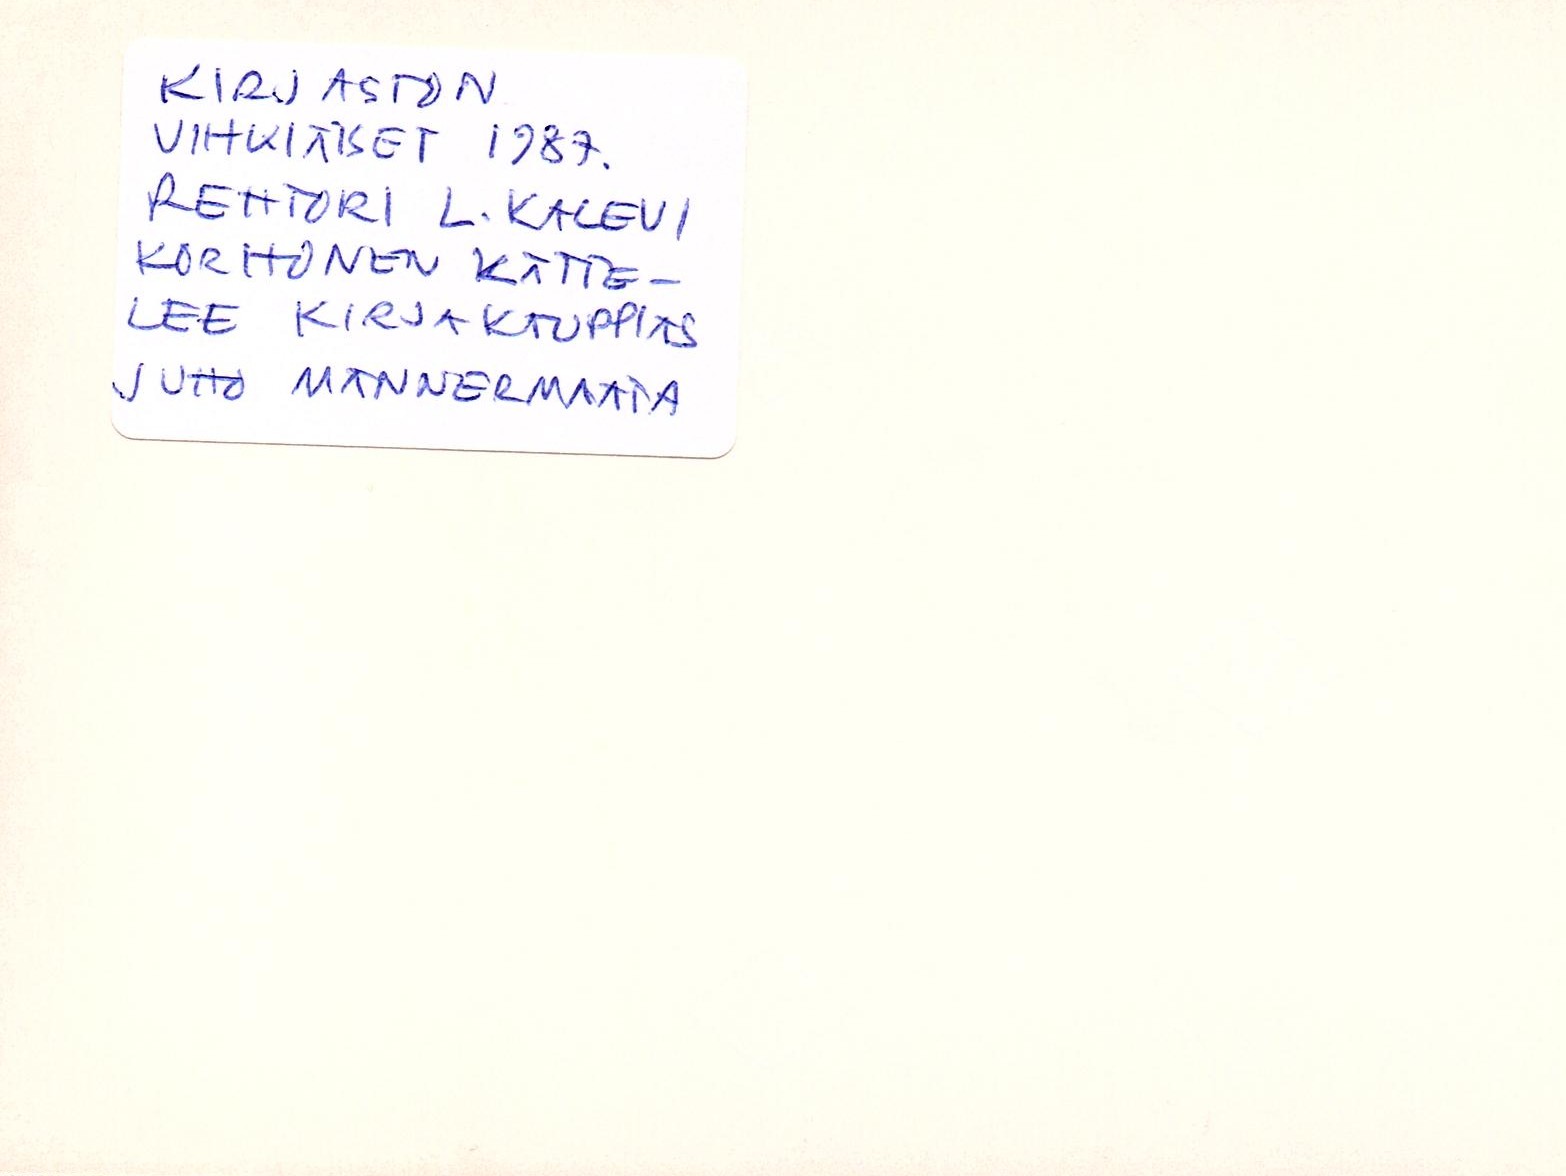 KIRJASTON
VIHKIÄISET 1987.
REHTORI L. KALEVI
KORHONEN KÄTTE-
LEE KIRJAKAUPPIAS
JUHO MÄNNERMAATA